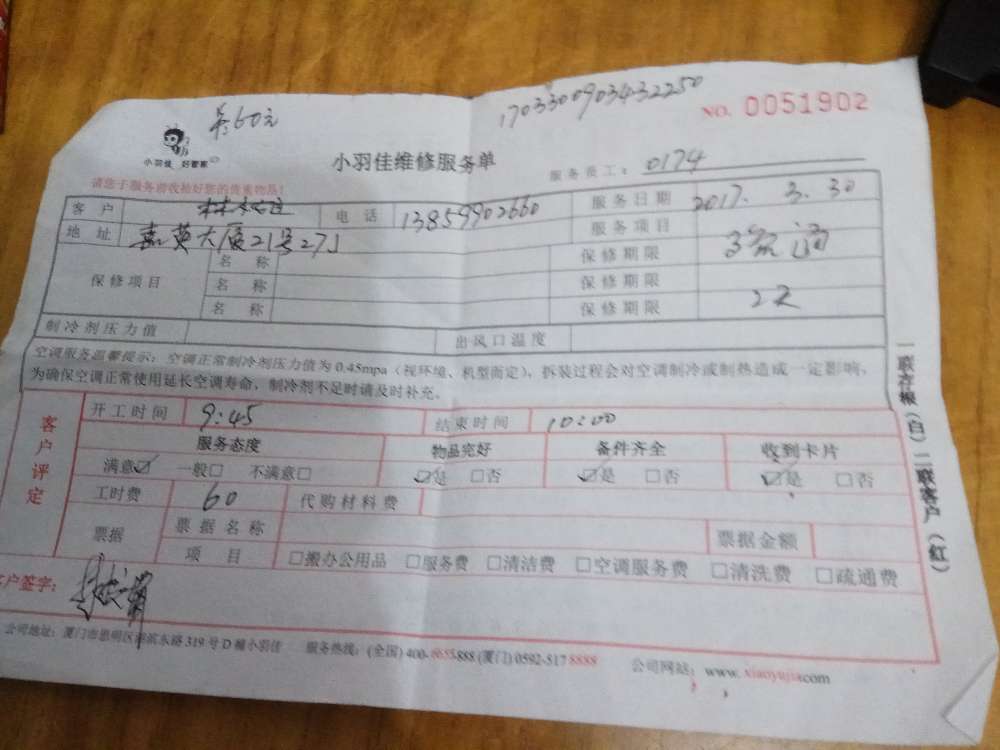 共60元
1703300903432250
NO. 0051902
小羽佳 好管家
小羽佳维修服务单
服务员工: 0174
请您于服务前收拾好您的贵重物品!
客户 电话 13859902660 服务日期 2017. 3. 30
地址 嘉英大厦21号27J 服务项目
保修项目 名称 保修期限
名称 保修期限
名称 保修期限 2天
制冷剂压力值 出风口温度
空调服务温馨提示: 空调正常制冷剂压力值为0.45mpa (视环境、机型而定), 拆装过程会对空调制冷或制热造成一定影响,
为确保空调正常使用延长空调寿命, 制冷剂不足时请及时补充。
客户评定
开工时间 9:45 结束时间 10:00
服务态度 物品完好 备件齐全 收到卡片
满意☑ 一般□ 不满意□ ☑是 □否 ☑是 □否 ☑是 □否
工时费 60 代购材料费
票据 票据名称 票据金额
项目 □搬办公用品 □服务费 □清洁费 □空调服务费 □清洗费 □疏通费
客户签字:
公司地址: 厦门市思明区湖滨东路319号D幢小羽佳 服务热线: (全国) 400-6655888 (厦门) 0592-5178888 公司网站: www.xiaoyujia.com
一联存根 (白) 二联客户 (红)